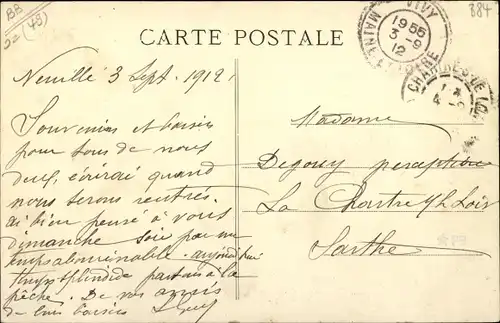 BB
(49)
884
CARTE POSTALE
VIVY
1955
3-9
12
MAINE
CHARTRE
4-9
Neuillé 3 Sept. 1912.
Souvenirs et baisers
pour tous de nous
deux, écrirai quand
nous serons rentrés.
ai bien pensé à vous
dimanche soir par un
temps abominable. aujourd'hui
temps splendide partons à la
pêche. De nos amis
de bons baisers
Madame
Degouy perceptrice
La Chartre s/h Loir
Sarthe